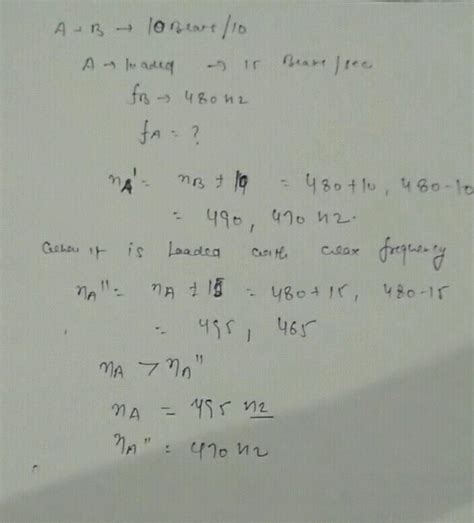 A → B → 10 Beats/10
A → loaded → 15 Beats/sec
fB → 480 Hz
fA = ?
nA' = nB ± 10 = 480+10, 480-10
= 490, 470 Hz.
when it is loaded with wax frequency
nA'' = nA ± 15 = 480+15, 480-15
= 495, 465
nA > nA''
nA = 495 Hz
nA'' = 470 Hz